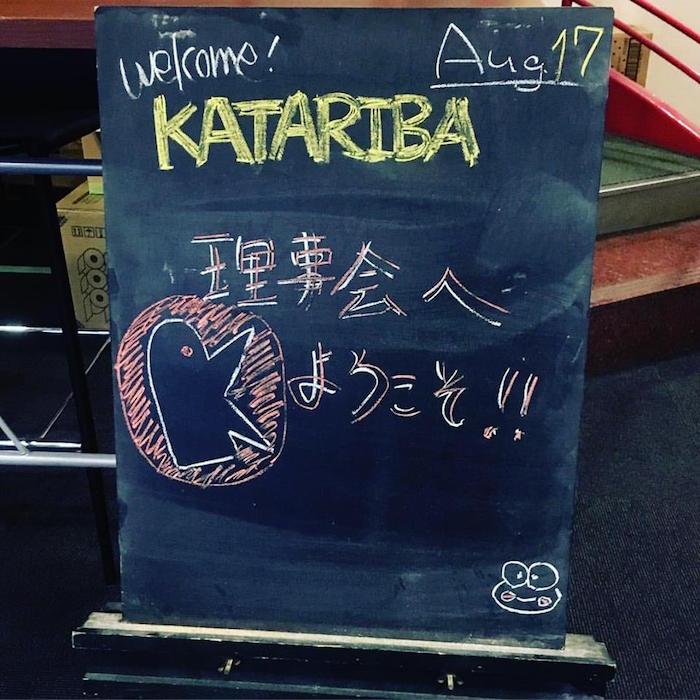 welcome!
Aug 17
KATARIBA
理事会へ
ようこそ!!